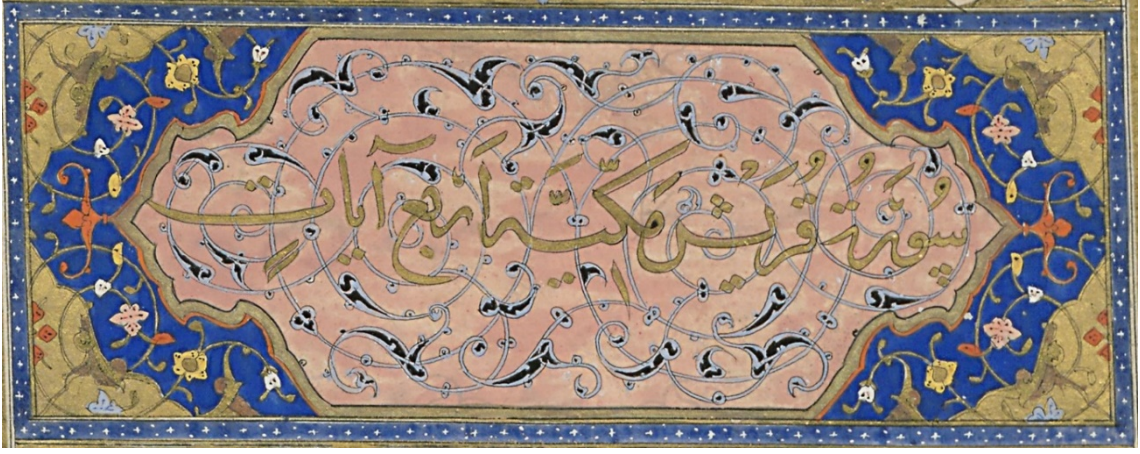 سُورَةُ قُرَيْشٍ مَكِّيَّةٌ اَرْبَعُ آيَاتٍ